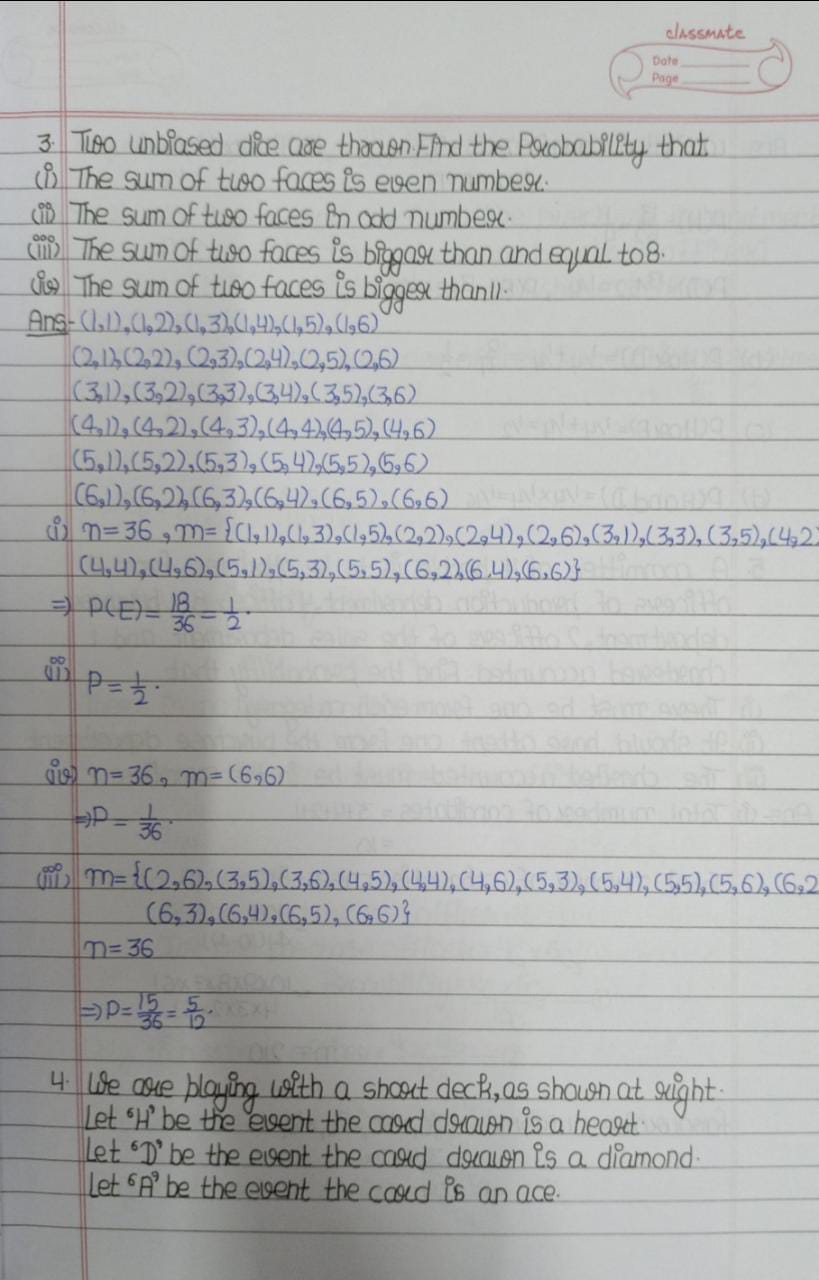 classmate
Date
Page
3. Two unbiased dice are thrown. Find the Probability that
(i) The sum of two faces is even number.
(ii) The sum of two faces in odd number.
(iii) The sum of two faces is biggar than and equal to 8.
(iv) The sum of two faces is bigger than 11.
Ans- (1,1), (1,2), (1,3), (1,4), (1,5), (1,6)
(2,1), (2,2), (2,3), (2,4), (2,5), (2,6)
(3,1), (3,2), (3,3), (3,4), (3,5), (3,6)
(4,1), (4,2), (4,3), (4,4), (4,5), (4,6)
(5,1), (5,2), (5,3), (5,4), (5,5), (5,6)
(6,1), (6,2), (6,3), (6,4), (6,5), (6,6)
(i) n=36, m={(1,1), (1,3), (1,5), (2,2), (2,4), (2,6), (3,1), (3,3), (3,5), (4,2)
(4,4), (4,6), (5,1), (5,3), (5,5), (6,2), (6,4), (6,6)}
⇒ P(E) = 18/36 = 1/2.
(ii) P = 1/2.
(iv) n=36, m=(6,6)
⇒ P = 1/36.
(iii) m={(2,6), (3,5), (3,6), (4,5), (4,4), (4,6), (5,3), (5,4), (5,5), (5,6), (6,2
(6,3), (6,4), (6,5), (6,6)}
n=36
⇒ P = 15/36 = 5/12.
4. We are playing with a short deck, as shown at right.
Let 'H' be the event the card drawn is a heart
Let 'D' be the event the card drawn is a diamond.
Let 'A' be the event the card is an ace.